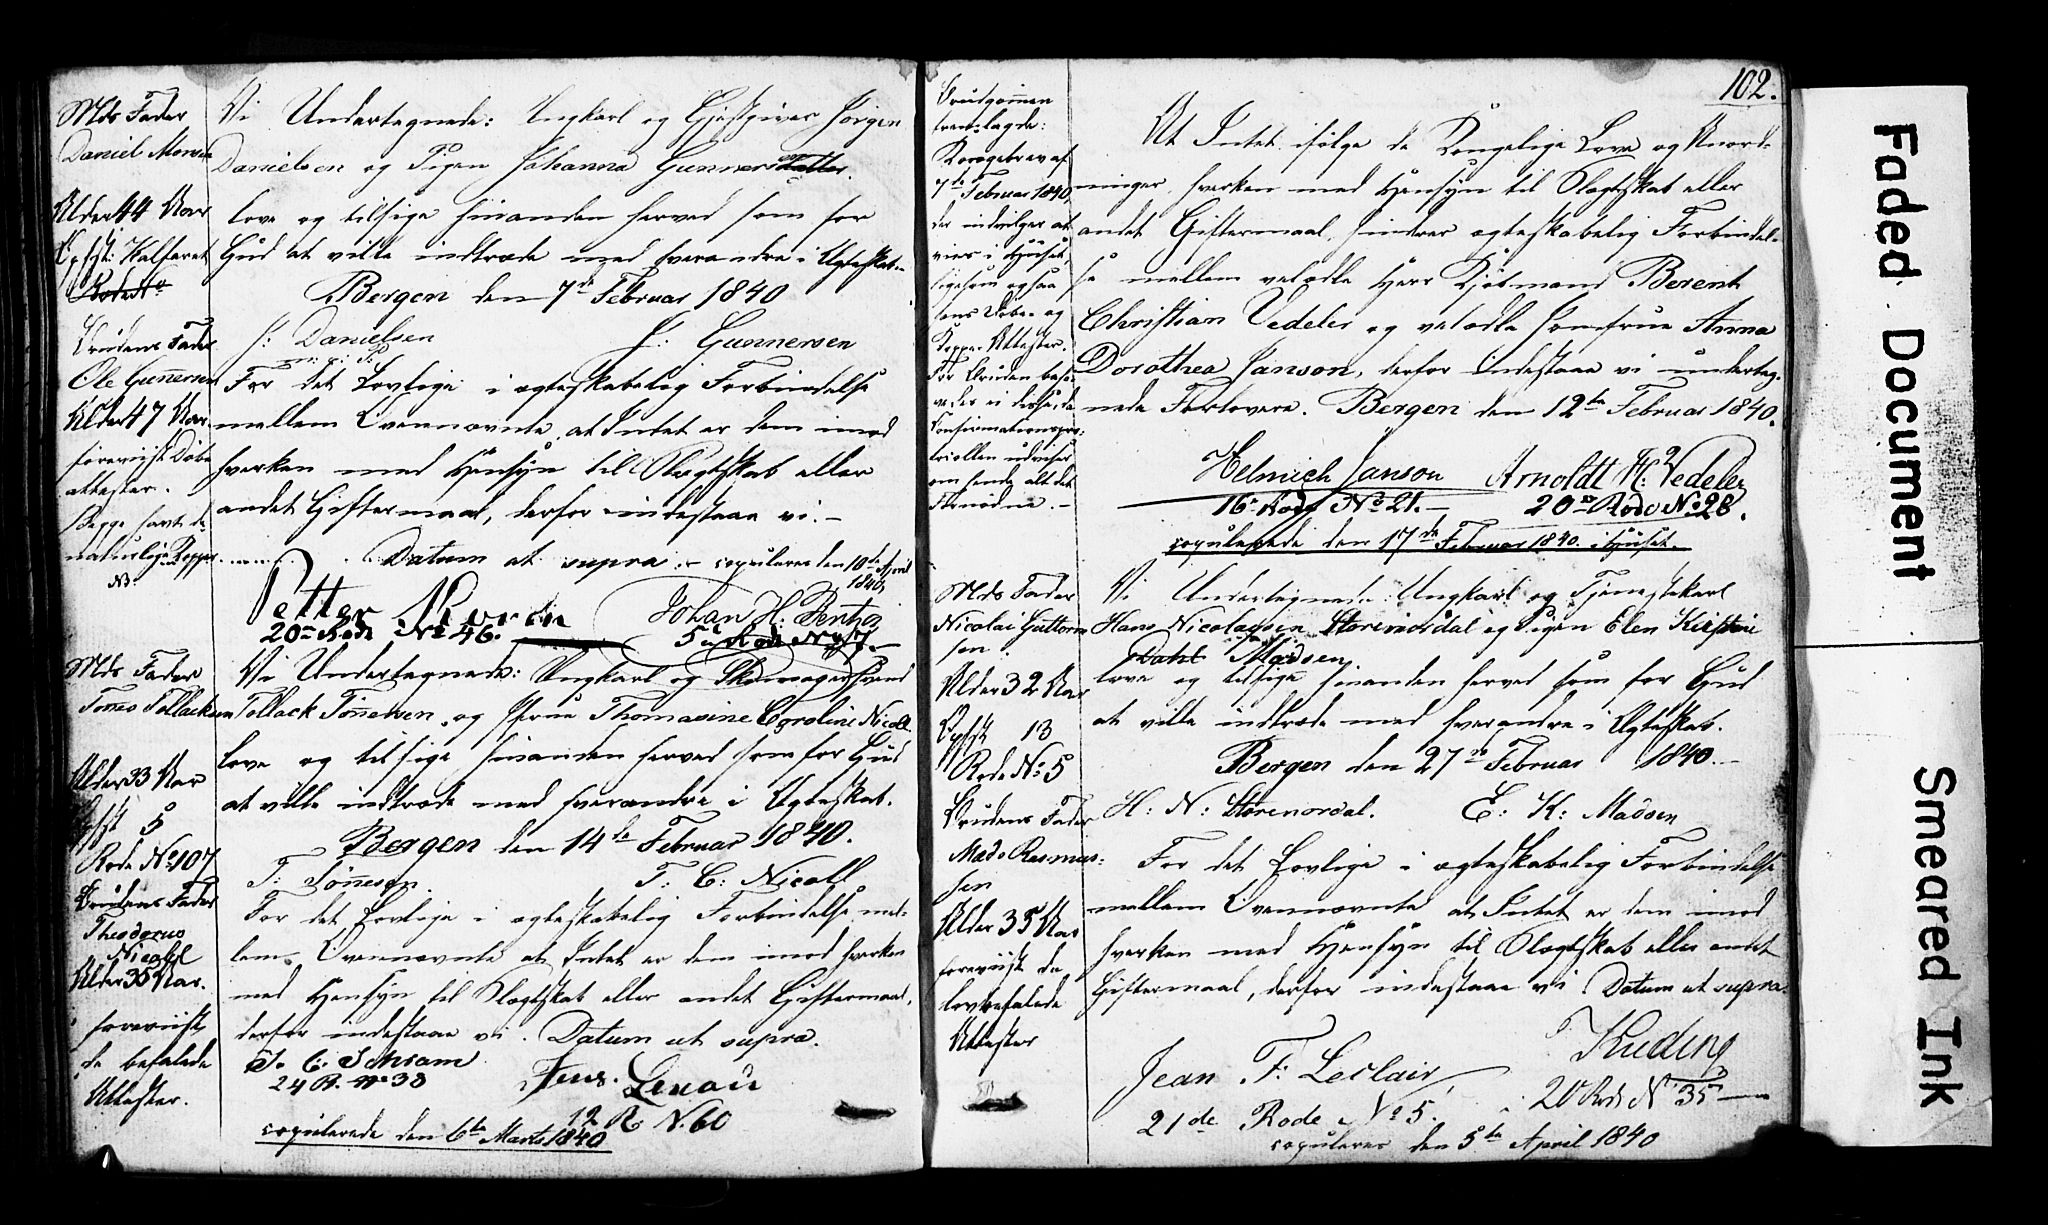 Mds Fader
Daniel Monsen
Alder 44 Aar
Opht: Kalfaret
Brudens Fader
Ole Gunnersen
Alder 47 Aar
foreviist Døbe
attester.
Begge havt de
naturlige Kopper
Vi Undertegnede: Ungkarl og Gjestgiver Jörgen
Danielsen og Pigen Johanna Gunnersdatter.
love og tilsige hinanden herved som for
Gud at ville indtræde med hverandre i Ægteskab.
Bergen den 7de Februar 1840
J: Danielsen J: Gunnersen
For det Lovlige i ægteskabelig Forbindelse
mellem Ovennævnte, at Intet er dem imod
hverken med Hensyn til Slægtskab eller
andet Giftermaal, derfor indestaae vi.-
Datum ut supra.- copuleres den 10de April
1840,
Petter
20de Rode No 46. Johan H: Pentz
5te Rode No 47.
Mds Fader
Tönnes Tollacksen
Alder 33 Aar
Opht 5
Rode No 107
Brudens Fader
Theodorus
Nicoll
Alder 38 Aar.
foreviist
de befalede
Attester.
Vi Undertegnede: Ungkarl og Skomagersvend
Tollack Tönnesen, og Pigen Thomasine Caroline Nicoll
love og tilsige hinanden herved som for Gud
at ville indtræde med hverandre i Ægteskab.
Bergen den 14de Februar 1840.
T: Tönnesen. T: C: Nicoll
For det Lovlige i ægteskabelig Forbindelse mel-
lem Ovennævnte at Intet er dem imod hverken
med Hensyn til Slægtskab eller andet Giftermaal,
derfor indestaae vi. Datum ut supra.
J. C. Schram
24 R. No 33 Jens. Lenau
12 R N. 60
copulerede den 6te Marts 1840
102.
Brudgommen
fremlagde:
Kongebrev af
7de Februar 1840,
der indvilger at
vies i Huset,
ligesom ogsaa
hans Døbe- og
Koppe-Attester.
For Bruden
Confirmationspro-
tocollen udviser
om hende alt det
Fornødne.-
At Intet ifølge de Kongelige Love og Anord-
ninger, hverken med Hensyn til Slægtskab eller
andet Giftermaal, hindrer ægteskabelig Forbindel-
se mellem velædle Herr Kjöbmand Berent
Christian Vedeler og velædle Jomfrue Anna
Dorothea Janson, derfor indestaae vi underteg-
nede Forlovere. Bergen den 12te Februar 1840.
Helmich Janson Arnoldt H: Vedeler
16de Rode No 21.- 20de Rode No 28.
copulerede den 17de Februar 1840. i Huset.
Mds Fader
Nicolai Guttorm
sen
Alder 32 Aar
Opht 13
Rode No: 5
Brudens Fader
Mads Rasmus-
sen
Alder 35 Aar
foreviist de
lovbefalede
Attester
Vi Undertegnede: Ungkarl og Tjenestekarl
Hans Nicolaysen Storemosdal og Pigen Elen Kirstine
Dahl Madsen
love og tilsige hinanden herved som for Gud
at ville indtræde med hverandre i Ægteskab.
Bergen den 27de Februar 1840.-
H: N: Storemosdal. E: K: Madsen
For det Lovlige i ægteskabelig Forbindelse
mellem Ovennævnte at Intet er dem imod
hverken med Hensyn til Slægtskab eller andet
Giftermaal, derfor indestaae vi. Datum ut supra.
Jean F: Leclair
21de Rode No 5. Kuding
20 Rode N 35
copuleres den 5te April 1840
Faded Document
Smeared Ink